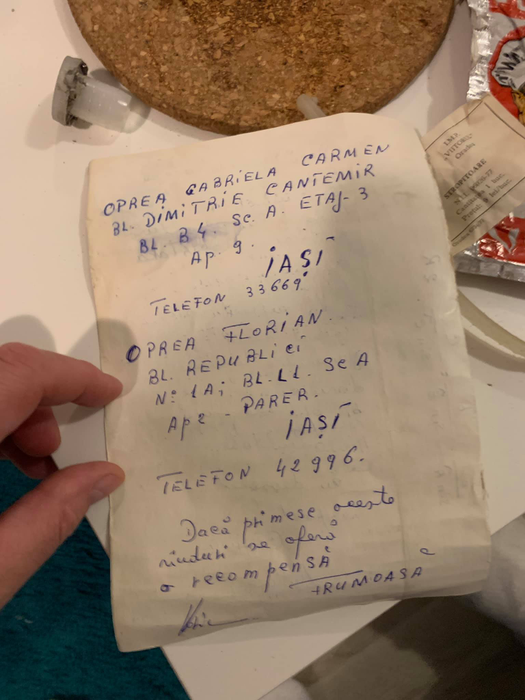 OPREA GABRIELA CARMEN
BL. DIMITRIE CANTEMIR
BL. B4. Sc. A. ETAJ-3
Ap. 9.
IAȘI
TELEFON 33669
OPREA FLORIAN
BL. REPUBLICI
No 1A; BL. L1. Sc A
Ap 2 - PARER.
IAȘI
TELEFON 42996.
Dacă primesc aceste
rînduri se oferă
o recompensă
FRUMOASĂ
I.M.P.
"VIITORUL"